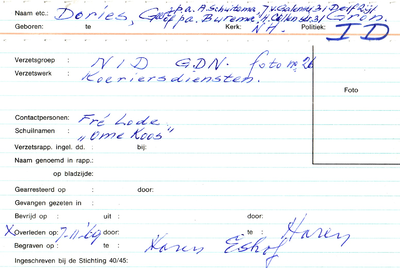 Naam etc.: Dories, p/a. A. Schuitema, J.v. 31 Delfzijl
p/a. Burema, H. 31 Gron.
Geboren: te Kerk: N.H. Politiek: ID
Verzetsgroep : NID GDN. foto no 26
Verzetswerk : Koeriersdiensten.
Foto
Contactpersonen: Fré Lode
Schuilnamen : "Ome Koos"
Verzetsrapp. ingel. dd. : bij:
Naam genoemd in rapp.:
op bladzijde:
Gearresteerd op : door:
Gevangen gezeten in :
Bevrijd op : uit : door:
X Overleden op: 7-11-'69 door: te : Haren
Begraven op : te : Haren Eshof
Ingeschreven bij de Stichting 40/45: